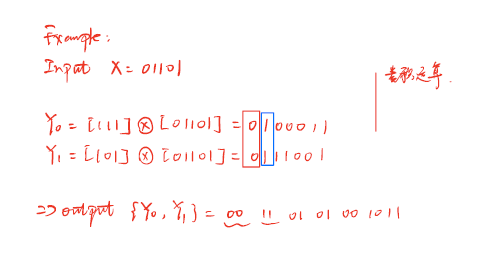 Example:
Input X = 01101
Y₀ = [111] ⊗ [01101] = 0100011
Y₁ = [101] ⊗ [01101] = 0111001
=> output {Y₀, Y₁} = 00 11 01 01 00 1011